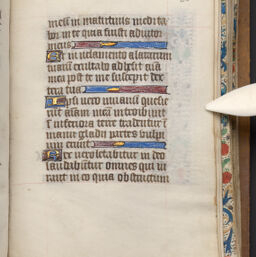 meis in matutinis medita
bor in te quia fuisti adiutor
meus
Et in velamento alarum
tuarum exultabo adhesit aīa
mea post te me suscepit dex
tera tua
Ipsi vero in vanū quesie
rūt aīam meā introibunt
in inferiora terre tradentur ī
manus gladii partes vulpiū
erunt
Rex vero letabitur in deo
laudabūtur omnes qui iu
rant in eo quia obstructum